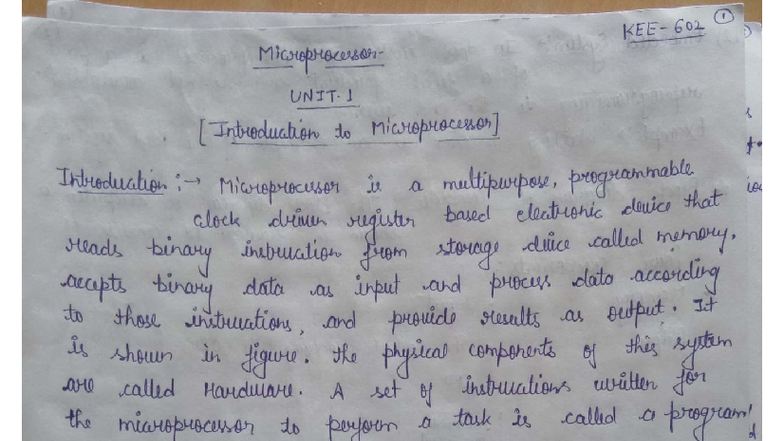 KEE-602 1
Microprocessor-
UNIT-1
[Introduction to Microprocessor]
Introduction :→ Microprocessor is a multipurpose, programmable
clock driven register based electronic device that
reads binary instruction from storage device called memory,
accepts binary data as input and process data according
to those instructions, and provide results as output. It
is shown in figure. The physical components of this system
are called Hardware. A set of instructions written for
the microprocessor to perform a task is called a program